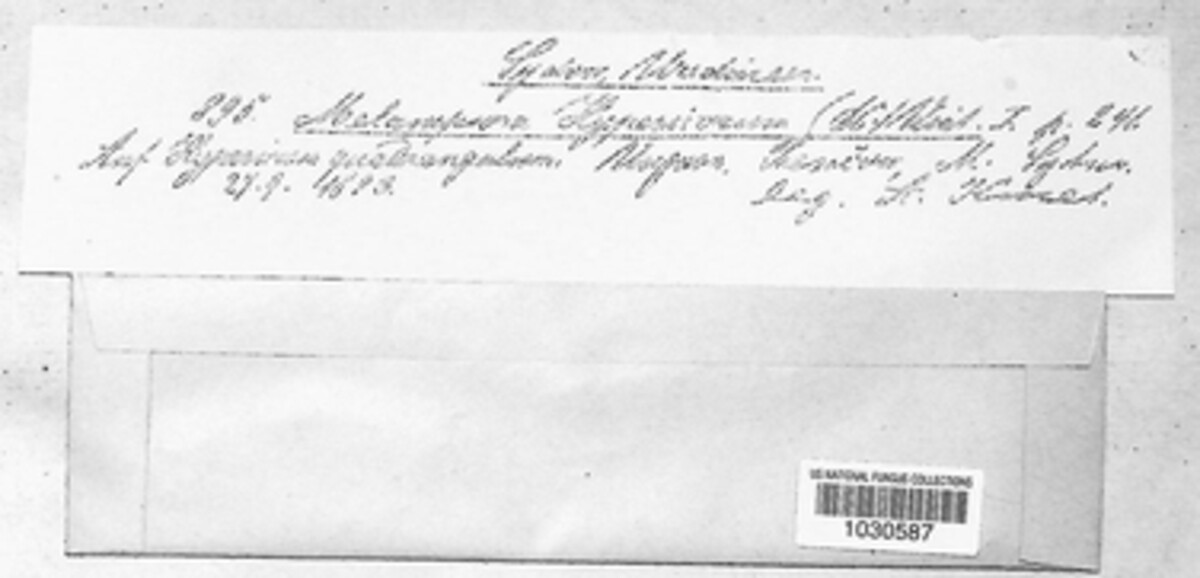 Sydow, Uredineen.
895. Melampsora Hypericorum (DC) Wint. I. p. 241.
Auf Hypericum quadrangulum. Ungarn, M.
27. 9. 1893. leg. A. Kmet.
US NATIONAL FUNGUS COLLECTIONS
1030587